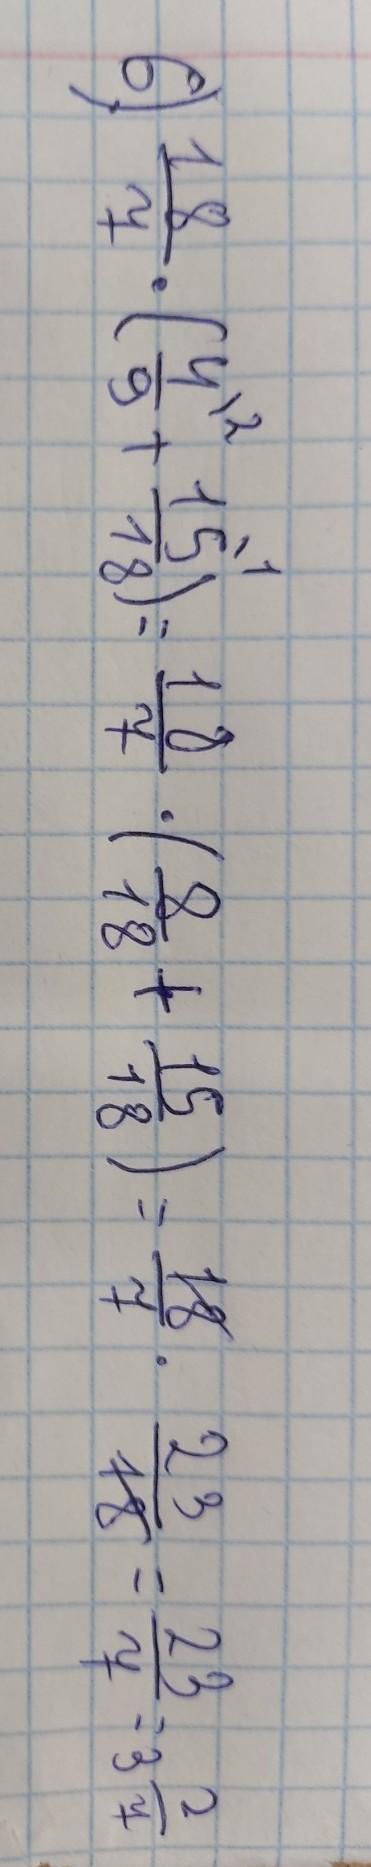 б) 18/7 · (4/9 ^\2 + 15/18 ^\1) = 18/7 · (8/18 + 15/18) = 18/7 · 23/18 = 23/7 = 3 2/7